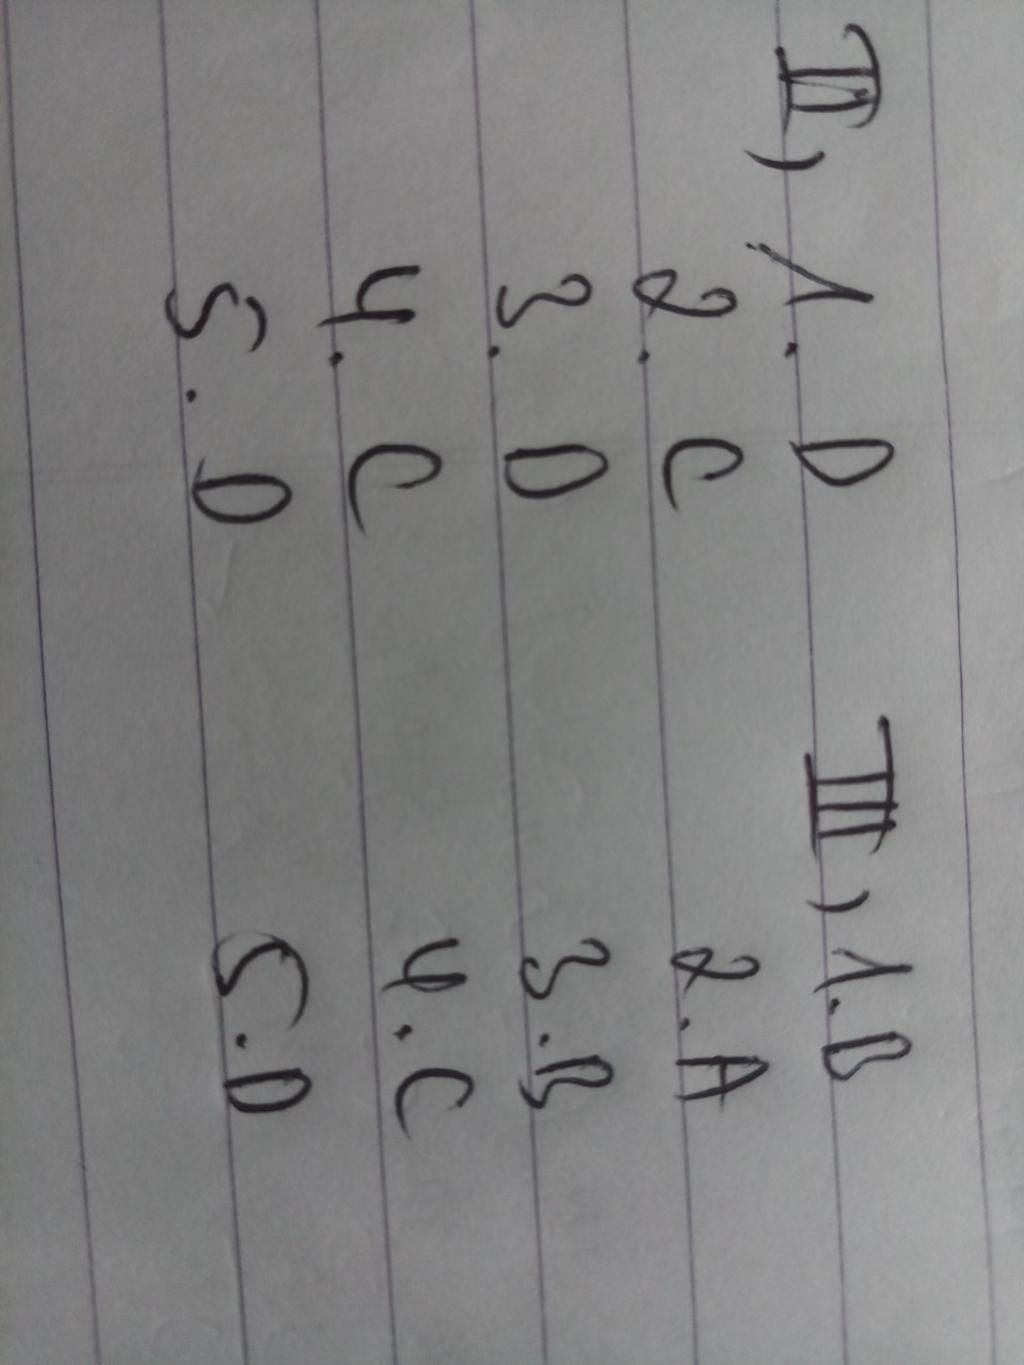 II) 1. D III) 1. B
2. C 2. A
3. D 3. B
4. C 4. C
5. D 5. D